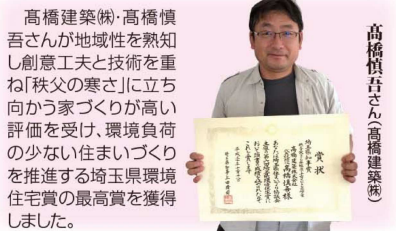 髙橋建築㈱・髙橋慎
吾さんが地域性を熟知
し創意工夫と技術を重
ね「秩父の寒さ」に立ち
向かう家づくりが高い
評価を受け、環境負荷
の少ない住まいづくり
を推進する埼玉県環境
住宅賞の最高賞を獲得
しました。
髙橋慎吾さん(髙橋建築㈱)
賞状